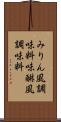 みりん風調
味料味醂風
調味料